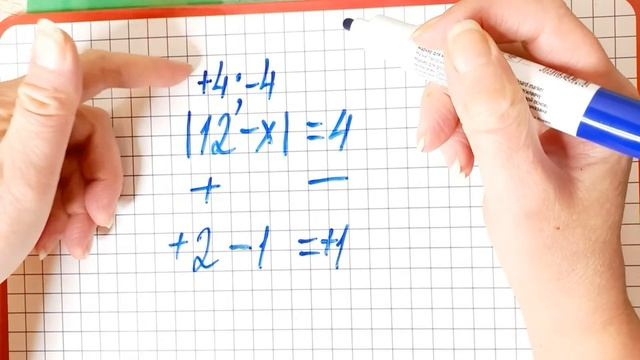 +4; -4
|12 - x| = 4
+ −
+2 - 1 = +1